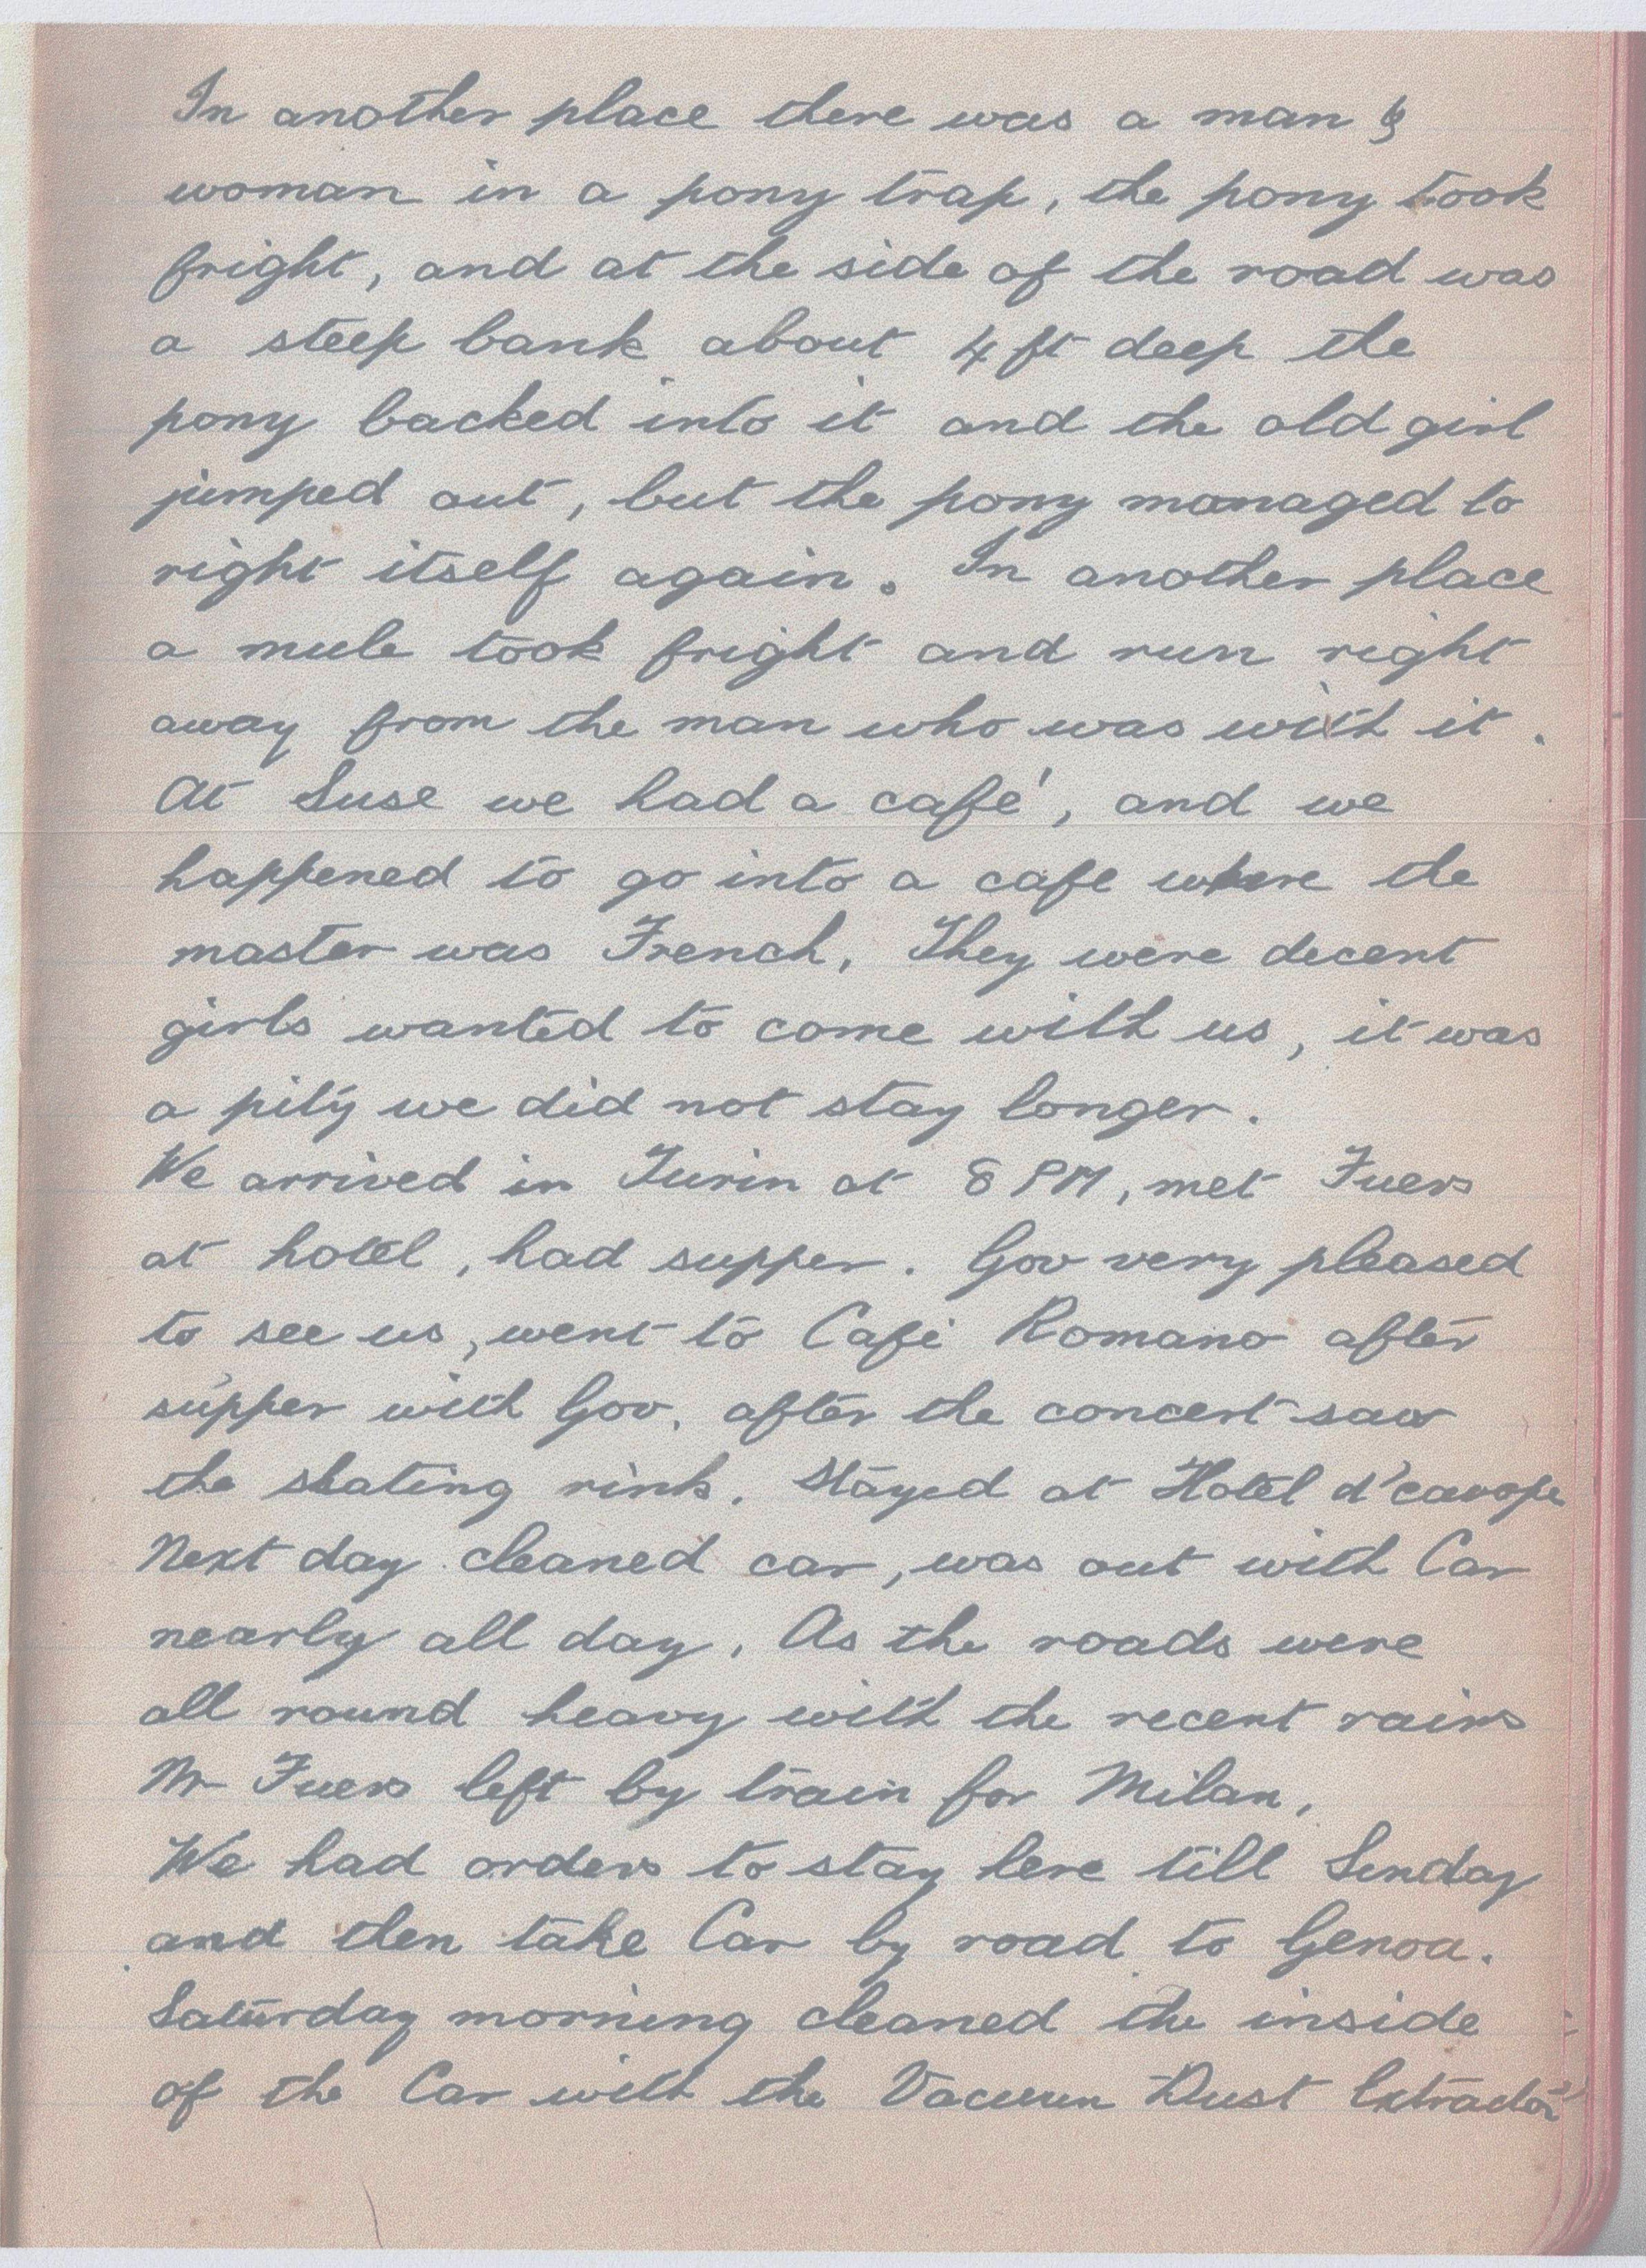 In another place there was a man &
woman in a pony trap, the pony took
fright, and at the side of the road was
a steep bank about 4 ft deep the
pony backed into it and the old girl
jumped out, but the pony managed to
right itself again. In another place
a mule took fright and run right
away from the man who was with it.
At Suse we had a café, and we
happened to go into a cafe where the
master was French, They were decent
girls wanted to come with us, it was
a pity we did not stay longer.
We arrived in Turin at 8 PM, met Fuers
at hotel, had supper. Gov very pleased
to see us, went to Café Romano after
supper with Gov. after the concert saw
the skating rink. Stayed at Hotel
Next day cleaned car, was out with Car
nearly all day, As the roads were
all round heavy with the recent rains
Mr Fuers left by train for Milan,
We had orders to stay here till Sunday
and then take Car by road to Genoa.
Saturday morning cleaned the inside
of the Car with the Vacuum Dust Extractor